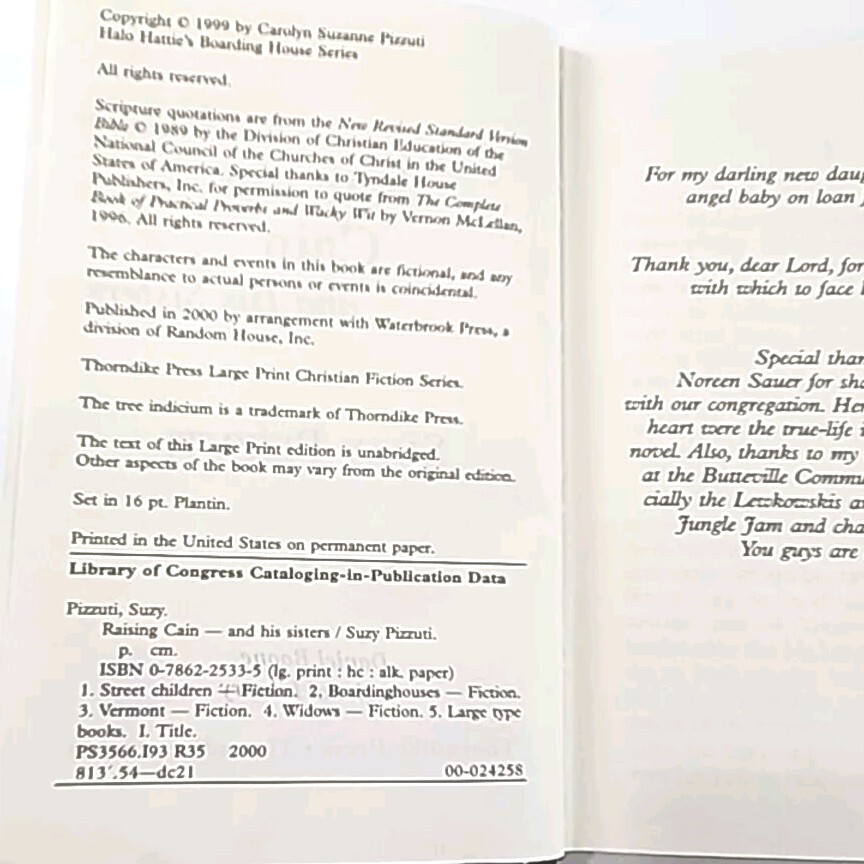 Copyright © 1999 by Carolyn Suzanne Pizzuti
Halo Hattie's Boarding House Series
All rights reserved.
Scripture quotations are from the New Revised Standard Version
Bible © 1989 by the Division of Christian Education of the
National Council of the Churches of Christ in the United
States of America. Special thanks to Tyndale House
Publishers, Inc. for permission to quote from The Complete
Book of Practical Proverbs and Wacky Wit by Vernon McLellan,
1996. All rights reserved.
The characters and events in this book are fictional, and any
resemblance to actual persons or events is coincidental.
Published in 2000 by arrangement with Waterbrook Press, a
division of Random House, Inc.
Thorndike Press Large Print Christian Fiction Series.
The tree indicium is a trademark of Thorndike Press.
The text of this Large Print edition is unabridged.
Other aspects of the book may vary from the original edition.
Set in 16 pt. Plantin.
Printed in the United States on permanent paper.
Library of Congress Cataloging-in-Publication Data
Pizzuti, Suzy.
Raising Cain — and his sisters / Suzy Pizzuti.
p. cm.
ISBN 0-7862-2533-5 (lg. print : hc : alk. paper)
1. Street children — Fiction. 2. Boardinghouses — Fiction.
3. Vermont — Fiction. 4. Widows — Fiction. 5. Large type
books. I. Title.
PS3566.I93 R35 2000
813'.54—dc21 00-024258
For my darling new daug
angel baby on loan
Thank you, dear Lord, for
with which to face
Special than
Noreen Sauer for sha
with our congregation. Her
heart were the true-life
novel. Also, thanks to my
at the Butteville Commu
cially the Lewkowskis a
Jungle Jam and cha
You guys are